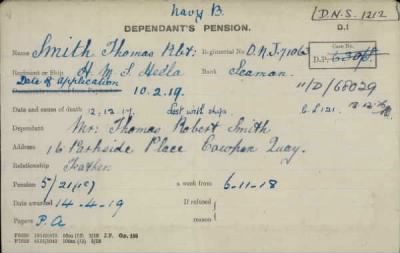 Navy B.
DEPENDANT'S PENSION.
[D.N.S. 1212]
D.1
Name Smith Thomas Robt: Registered No.
Case No.
D.P.
Regiment or Ship H. M. S. Hecla Rank Seaman.
11/D/68029
Date of Application 10.2.19.
Date and cause of death 12.12.17. Lost with ship.
Dependant Mr: Thomas Robert Smith
Address 16 Parkside Place Cowpen Quay.
Relationship Father.
Pension 5/- a week from 6-11-18
Date awarded 14-4-19 If refused
reason
Papers P.A